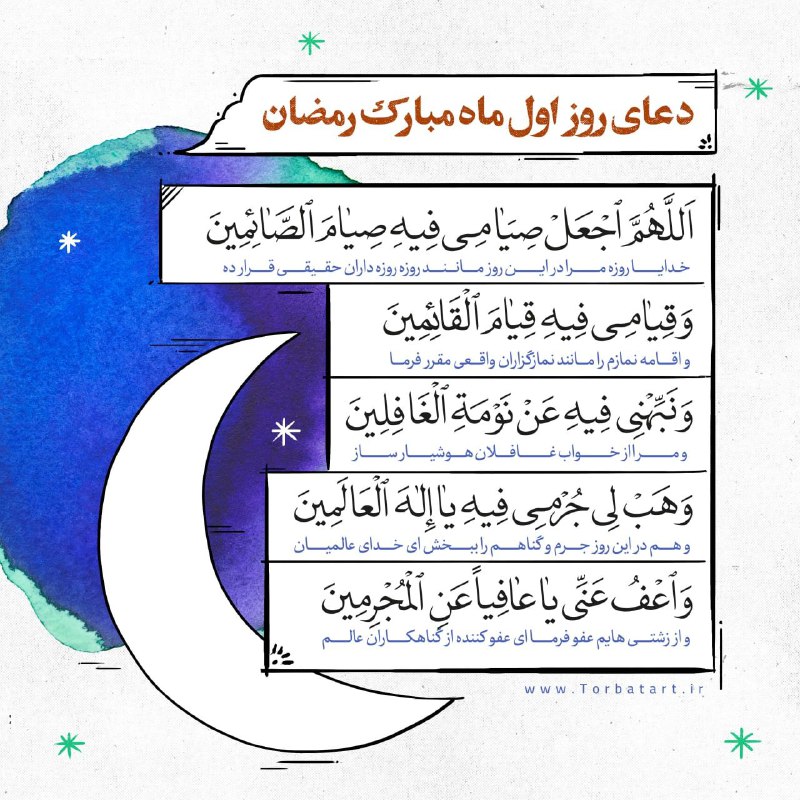 دعای روز اول ماه مبارک رمضان
اَللَّهُمَّ ٱجْعَلْ صِیَامِی فِیهِ صِیَامَ ٱلصَّائِمِینَ
خدایا روزه مرا در این روز مانند روزه روزه داران حقیقی قرار ده
وَقِیَامِی فِیهِ قِیَامَ ٱلْقَائِمِینَ
و اقامه نمازم را مانند نمازگزاران واقعی مقرر فرما
وَنَبِّهْنِی فِیهِ عَنْ نَوْمَةِ ٱلْغَافِلِینَ
و مرا از خواب غافلان هوشیار ساز
وَهَبْ لِی جُرْمِی فِیهِ یَا إِلٰهَ ٱلْعَالَمِینَ
و هم در این روز جرم و گناهم را ببخش ای خدای عالمیان
وَٱعْفُ عَنِّی یَا عَافِیاً عَنِ ٱلْمُجْرِمِینَ
و از زشتی هایم عفو فرما ای عفو کننده از گناهکاران عالم
www.Torbatart.ir